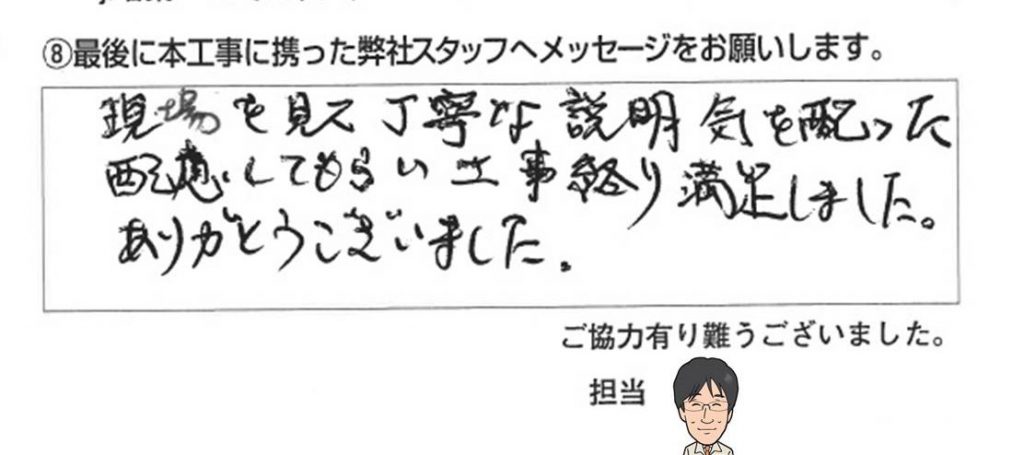 ⑧最後に本工事に携った弊社スタッフへメッセージをお願いします。
現場を見て丁寧な説明気を配った
配慮してもらい工事終り満足しました。
ありがとうございました。
ご協力有り難うございました。
担当